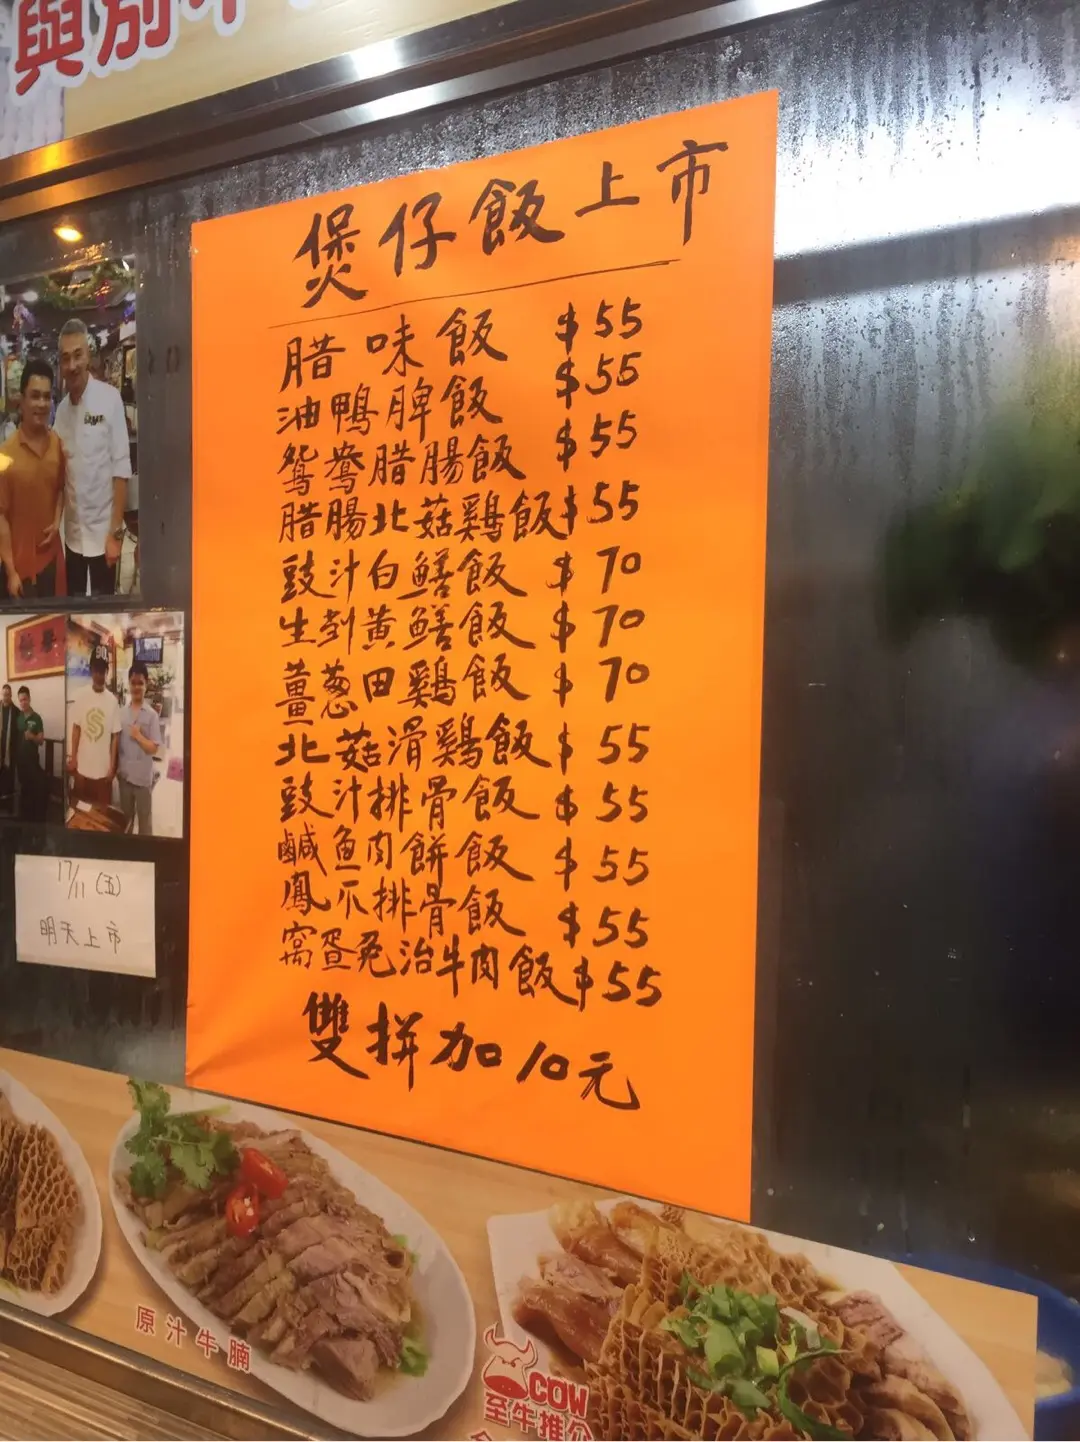 與別
煲仔飯上市
腊味飯 $55
油鴨脾飯 $55
鴛鴦腊腸飯 $55
腊腸北菇鷄飯 $55
豉汁白鱔飯 $70
生劏黄鱔飯 $70
薑葱田鷄飯 $70
北菇滑鷄飯 $55
豉汁排骨飯 $55
鹹魚肉餅飯 $55
鳳爪排骨飯 $55
窩蛋免治牛肉飯 $55
雙拼加10元
17/11 (五)
明天上市
原汁牛腩
COW
至牛推介